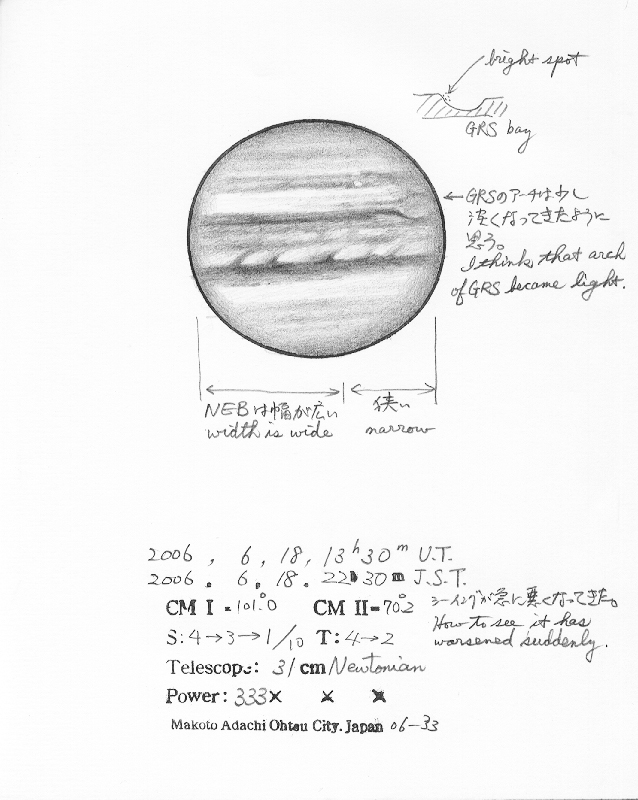 bright spot
GRS bay
←GRSのアーチは少し
淡くなってきたように
思う。
I think that arch
of GRS became light.
NEBは幅が広い
width is wide
狭い
narrow
2006, 6, 18, 13h30m U.T.
2006. 6. 18. 22h30m J.S.T.
CM I = 101.°0 CM II = 70.°2
シーイングが急に悪くなってきた。
How to see it has
worsened suddenly.
S: 4→3→1/10 T: 4→2
Telescope: 31cm Newtonian
Power: 333× × ×
Makoto Adachi Ohtsu City. Japan 06-33